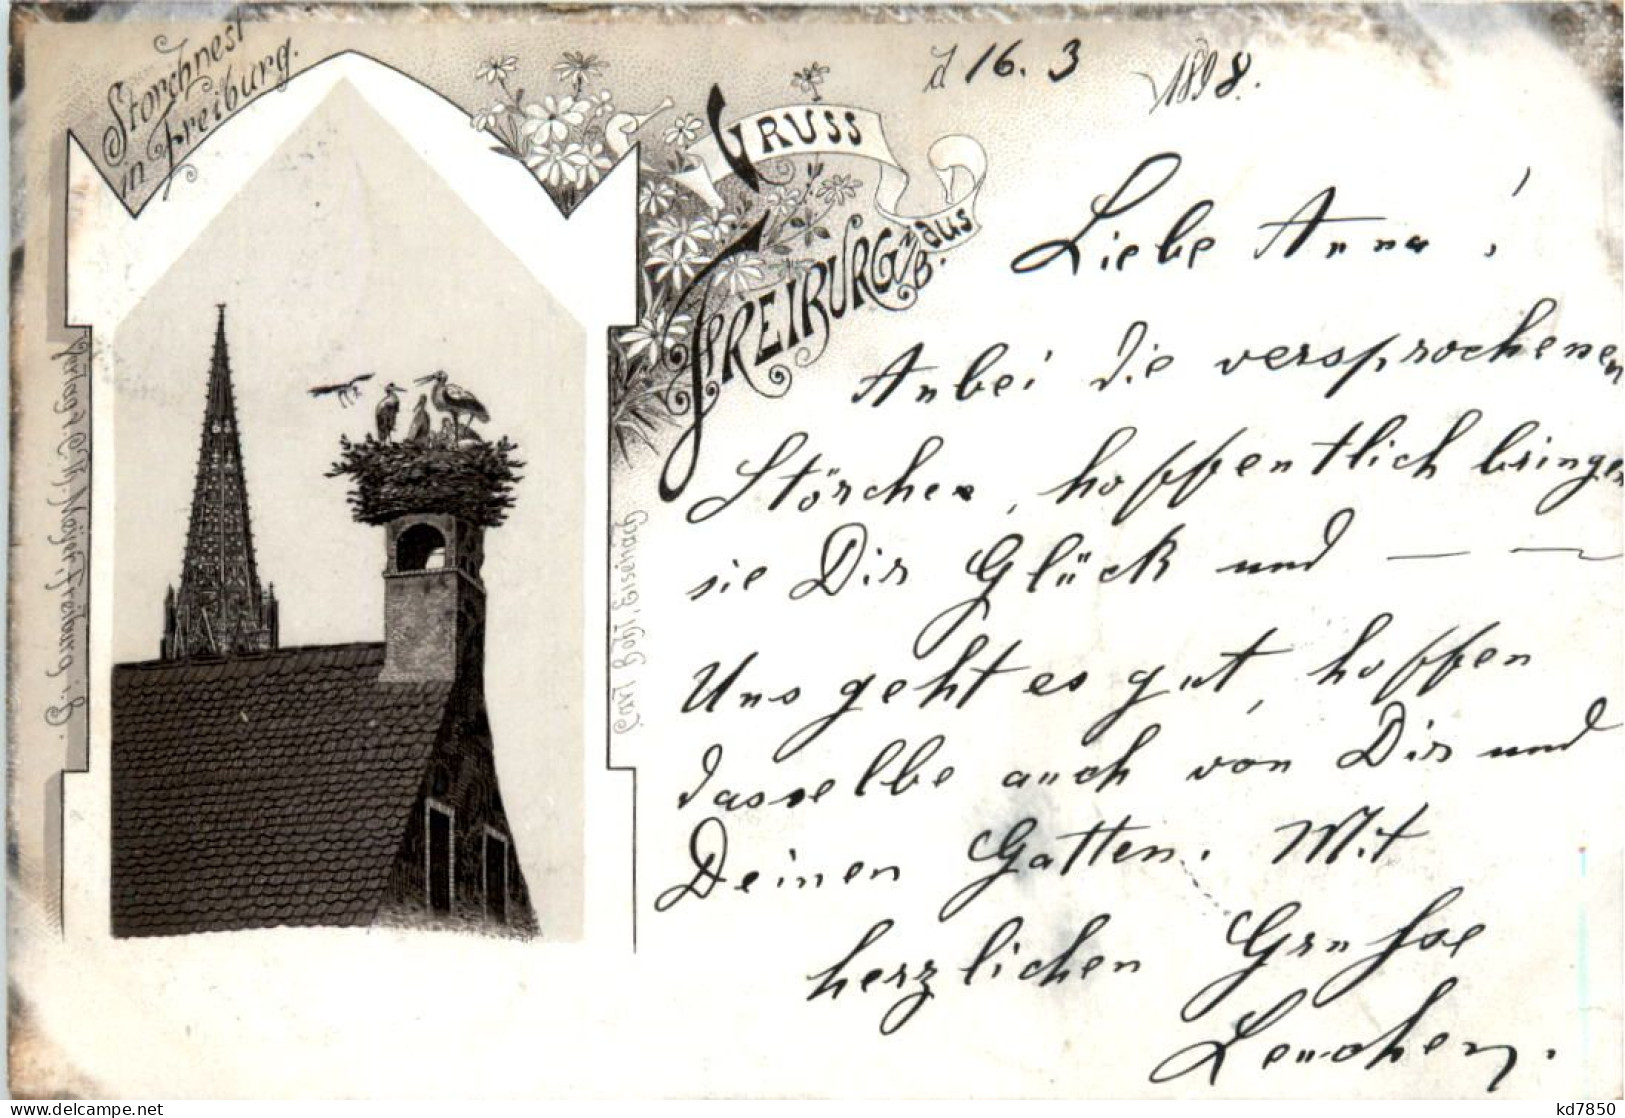 Storchnest
in Freiburg.
GRUSS
aus
FREIBURG i/B.
d 16. 3 1898.
Liebe Anna!
Anbei die versprochenen
Störche, hoffentlich bringen
sie Dir Glück und — —
Uns geht es gut, hoffen
dasselbe auch von Dir und
Deinen Gatten. Mit
herzlichen Grüsse
Lenchen.
Carl Böhl, Eisenach
kd7850